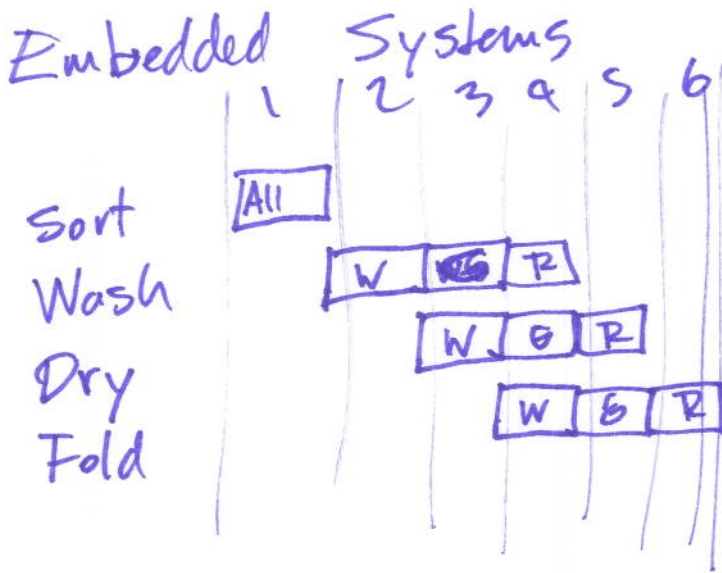 Embedded Systems
1 2 3 4 5 6
Sort All
Wash W R
Dry W G R
Fold W G R